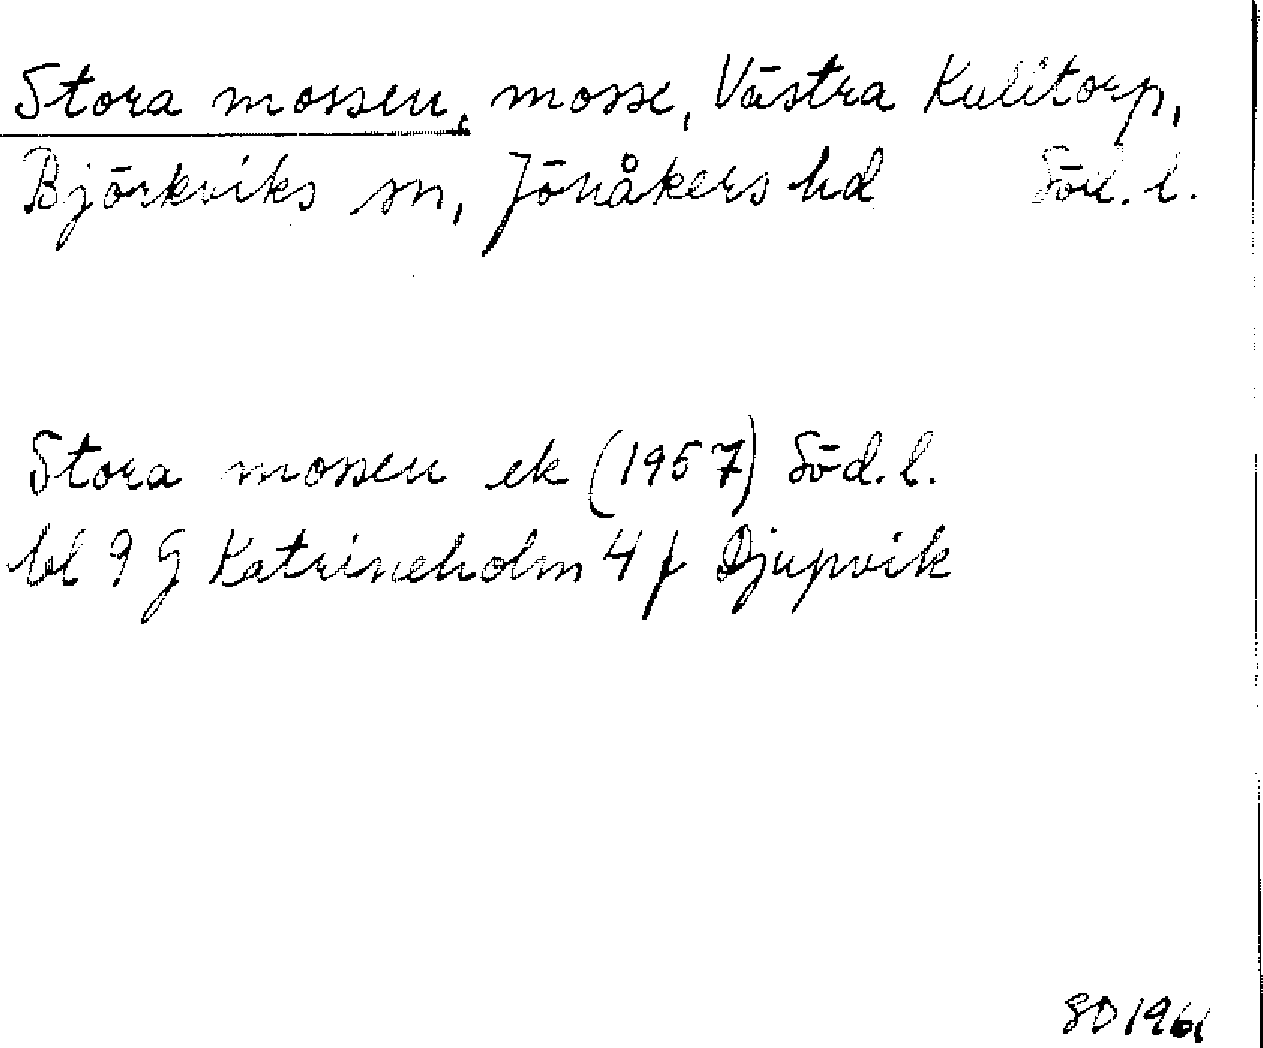 Stora mossen, mosse, Västra Kulltorp,
Björkviks sn, Jönåkers hd Söd. l.
Stora mossen ek (1957) Söd. l.
bl 9 G Katrineholm 4 f Djupvik
SD 1961